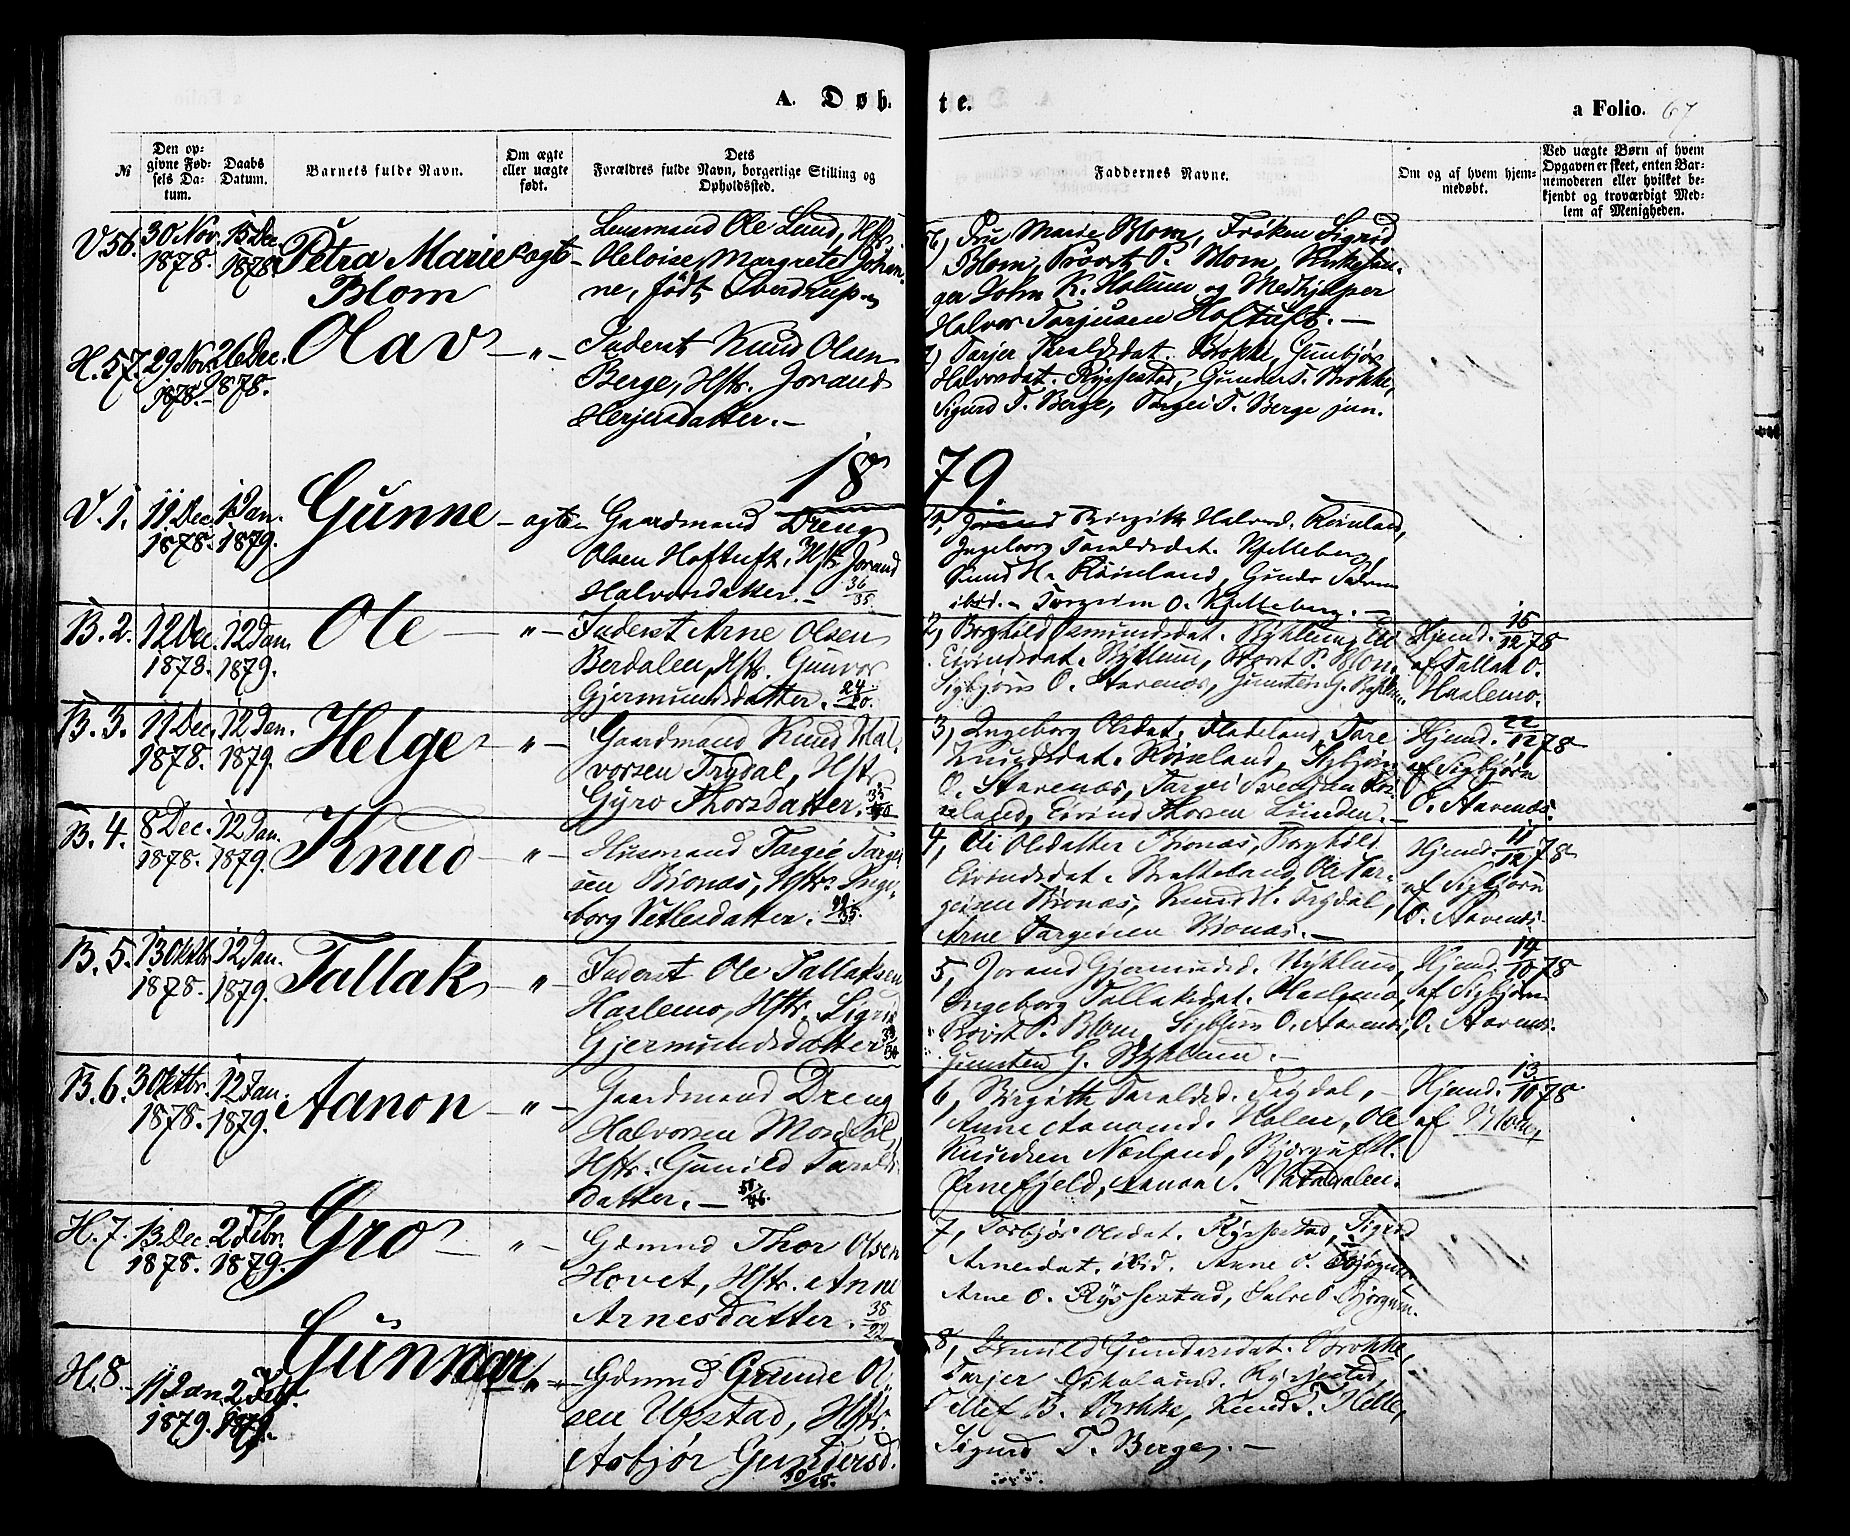 A. Døb-
te.
a Folio. 67
№
Den op-
givne Fød-
sels Da-
tum.
Daabs
Datum.
Barnets fulde Navn.
Om ægte
eller uægte
født.
Dets
Forældres fulde Navn, borgerlige Stilling og
Opholdssted.
Faddernes Navne.
Om og af hvem hjem-
medøbt.
Ved uægte Børn af hvem
Opgaven er skeet, enten Bar-
nemoderen eller hvilket be-
kjendt og troværdigt Med-
lem af Menigheden.
V. 56.
30 Nov.
1878.
15 Dec.
1878.
Petra Marie
Blom
ægte
Lensmand Ole Lund, Hstr.
Heloise Margrete Johan-
ne, født Sverdrup
6) Fru Marie Blom, Frøken Sigrid
Blom, Provst P. Blom, Kirkesan-
ger John K. Holum og Medhjelper
Halvor Tarjusen Hoftuft. —
H. 57.
29 Nov.
1878.
26 Dec.
1878.
Olav — „ —
Inderst Knud Olsen
Berge, Hstr. Jorand
Herjusdatter. —
7) Tarjer Taraldsdat. Brokke, Gunbjør
Halvorsdat. Rysstad, Gunder T. Brokke,
Sigurd T. Berge, Torgei T. Berge jun.
1879
V. 1.
11 Dec.
1878.
1 Jan.
1879.
Gunne — ægte
Gaardmand Dreng
Olsen Hoftuft, Hstr. Jorand
Halvorsdatter. — 36/35.
1, Birgitte Halvorsd. Rønland,
Ingeborg Taraldsdat. Kjelleberg,
Knud H. Rønland, Gunder
ibid. — Torgrim O. Kjelleberg. —
B. 2.
12 Dec.
1878.
12 Jan.
1879.
Ole — „ —
Inderst Arne Olsen
Berdalen, Hstr. Gunvor
Gjermundsdatter. 24/20.
2, Borghild Osmundsdat. Nyklum,
Eivindsdat. Nyklum, Provst P. Blom,
Sigbjørn O. Aarenes, Gunsten G. Nyklum.
Hjemd. 15/12 78
af Tallak O.
Haslemo.
B. 3.
11 Dec.
1878.
12 Jan.
1879.
Helge — „ —
Gaardmand Knud Hal-
vorsen Trydal, Hstr.
Gyro Thorsdatter. 33/40
3, Ingeborg Olsdat. Fladeland, Tore
Knudsdat. Rønland, Sigbjørn
O. Aarenes, Targei Svensen
Eivind Thorsen Lunden. —
Hjemd. 22/12 78
af Sigbjørn
O. Aarenes.
B. 4.
8 Dec.
1878.
12 Jan.
1879.
Knud — „ —
Husmand Targei Targei-
sen Bjonas, Hstr. Inge-
borg Vetlesdatter.
4, Oli Olsdatter Bjonas, Borghild
Eivindsdat. Bratteland, Ole Tar-
geisen Bjonas, Knud H. Trydal,
Arne Targeisen Bjonas. —
Hjemd. 11/12 78
af Sigbjørn
O. Aarenes.
B. 5.
13 Oktbr.
1878.
12 Jan.
1879.
Tallak — „ —
Inderst Ole Tallaksen
Haslemo, Hstr. Sigrid
Gjermundsdatter
5, Jorand Gjermundsd. Nyklum,
Ingeborg Tallaksdat. Haslemo,
Provst P. Blom, Sigbjørn O. Aarenes,
Gunsten G. Nyklum. —
Hjemd. 14/10 78
af Sigbjørn
O. Aarenes.
B. 6.
3 Oktbr.
1878.
12 Jan.
1879.
Aanon — „ —
Gaardmand Dreng
Halvorsen
Hstr. Gunild Taralds-
datter. — 51/46
6, Birgitte Taraldsd. Trydal, —
Anne Aanonsd. Holen, Ole
Knudsen Nesland, Bjørgulf H.
Ørnefjeld, Aanon S. Vatndalen.
Hjemd. 13/10 78
af Blom,
H. 7.
13 Dec.
1878.
2 Febr.
1879.
Gro — „ —
Gdmnd Thor Olsen
Hovet, Hstr. Anne
Arnesdatter. 38/22
7, Torbjør Olsdat. Rysstad, Sigrid
Arnesdat. ibid. Anne O. Bjørgum
Arne O. Rysstad, Salve Bjørgum.
H. 8.
11 Jan.
1879.
2 Febr.
1879.
Gunnar „ —
Gdmnd Gunde Ol-
sen Upstad, Hstr.
Asbjør Gundersd.
8, Gunild Gundersdat. Brokke,
Tarjer Rysstad,
Tellef B. Brokke, Knud T. Helle,
Sigurd T. Berge. —